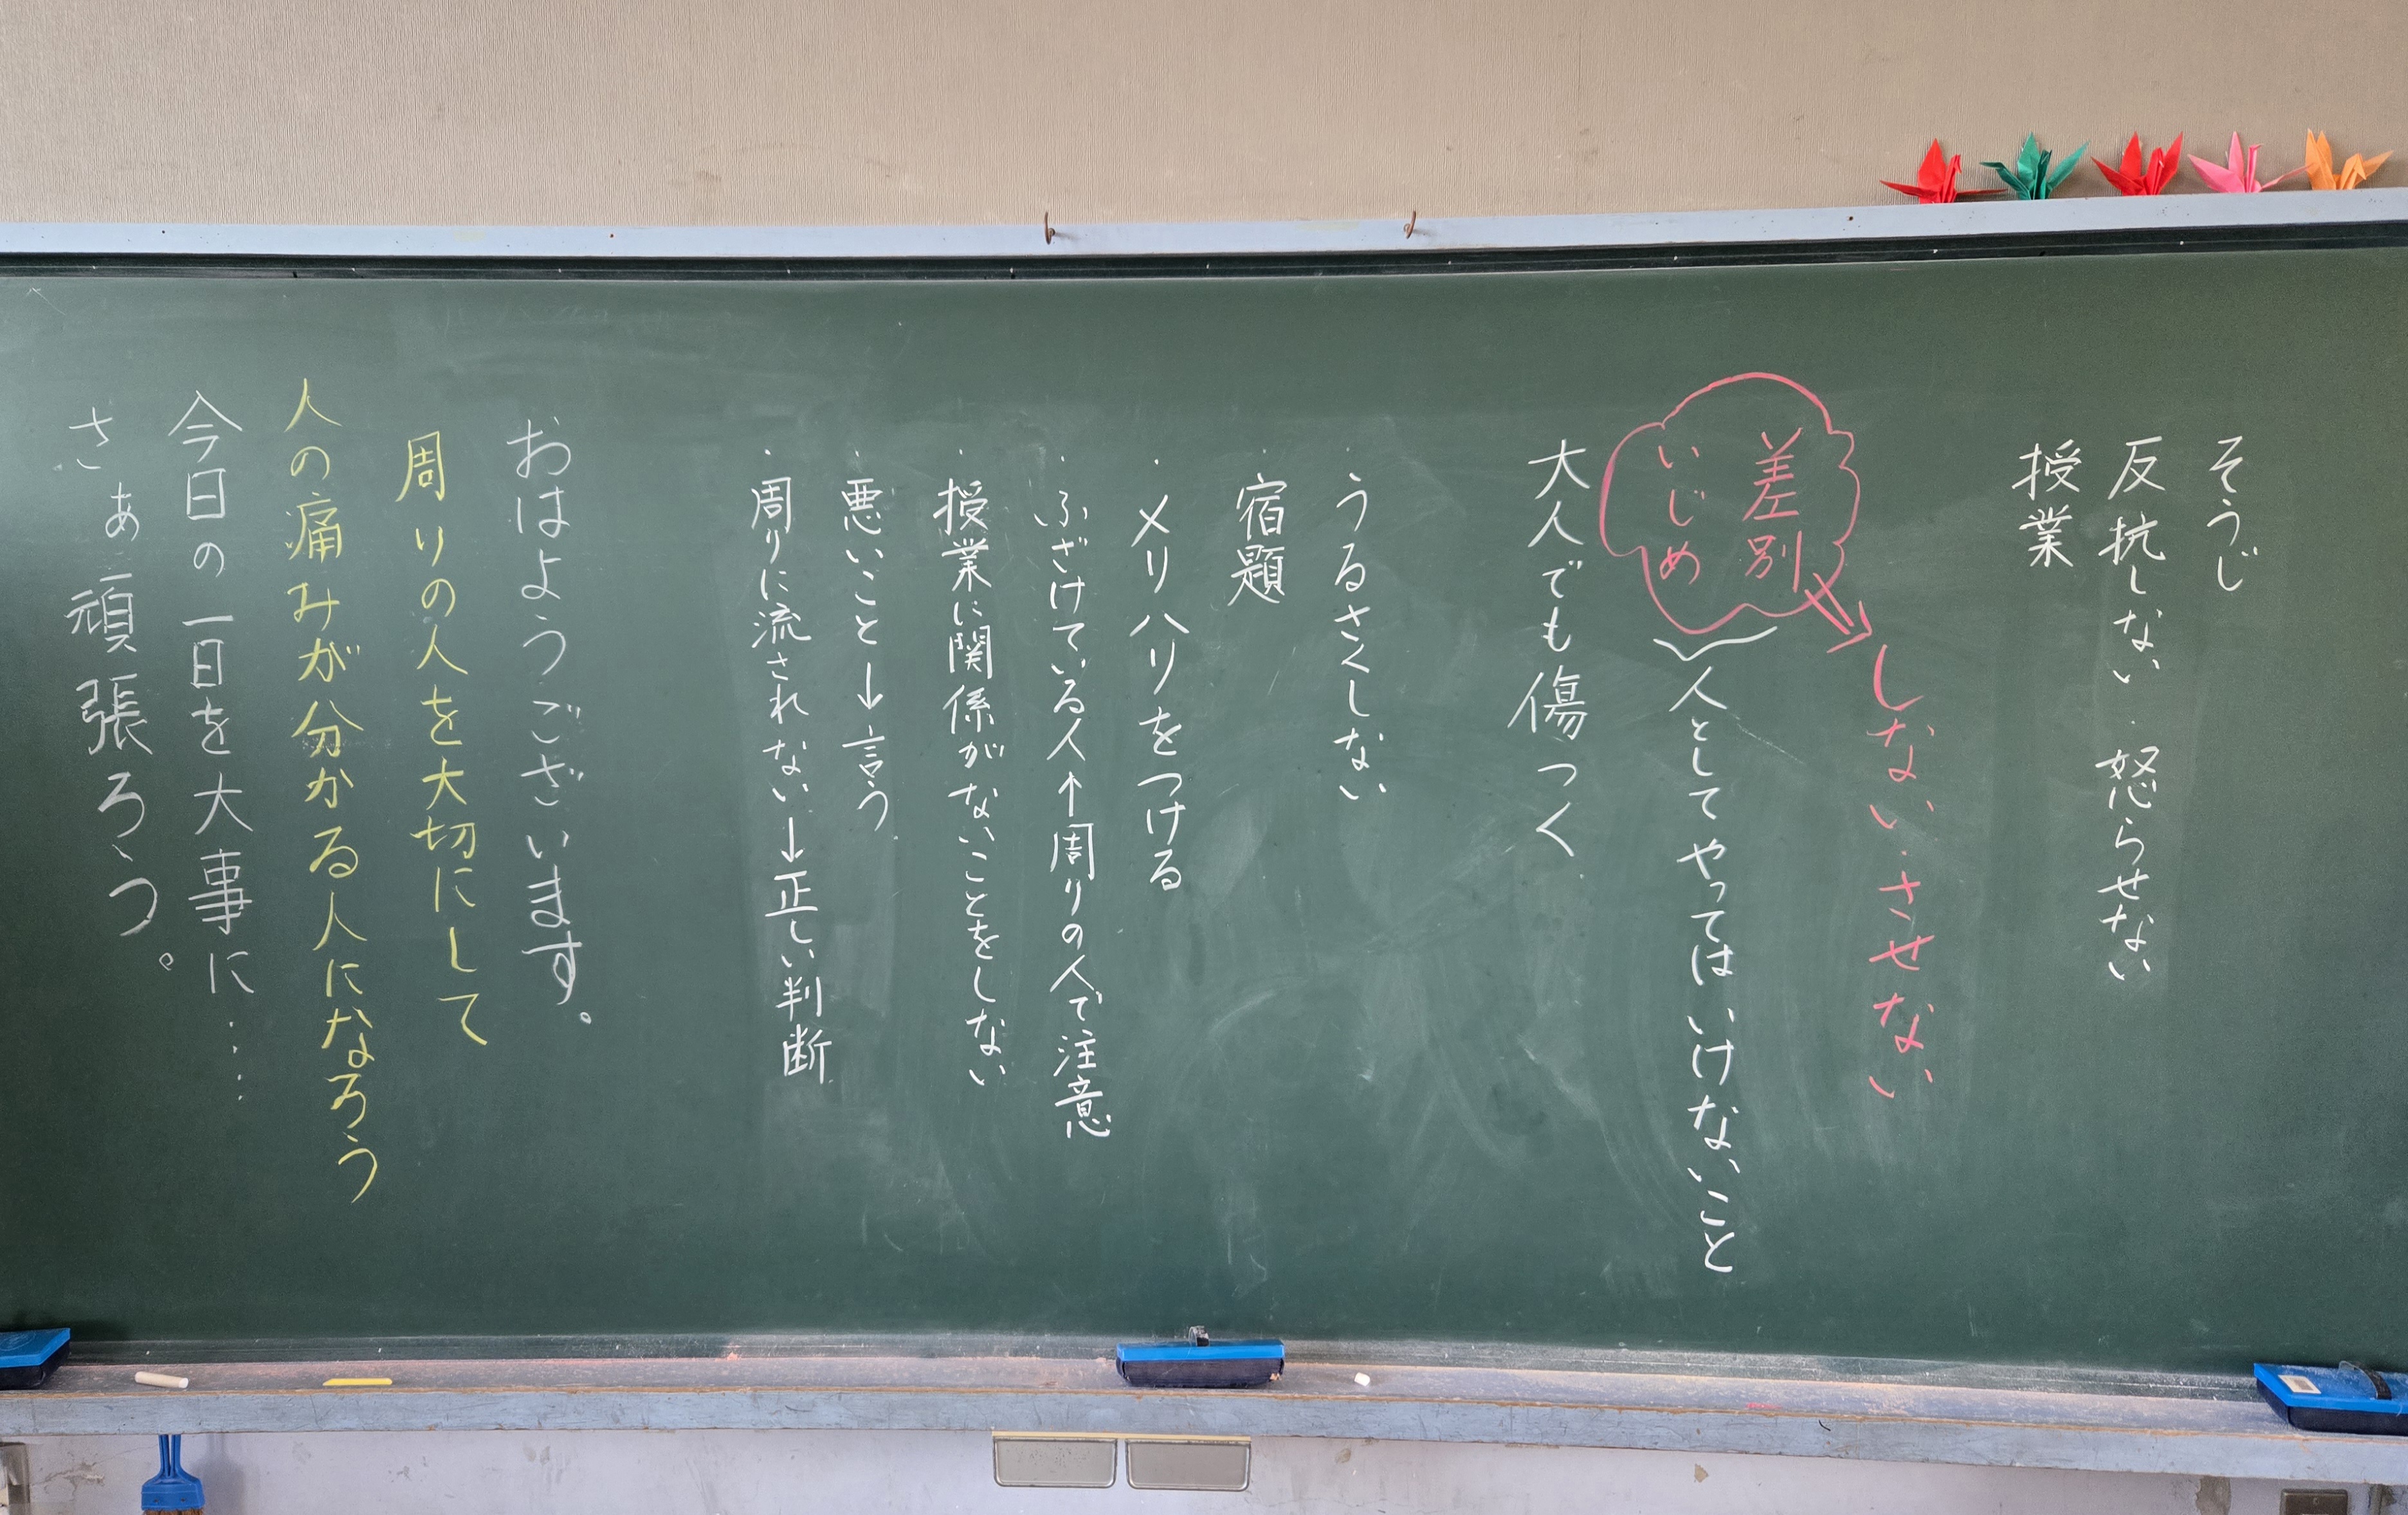 そうじ
反抗しない・怒らせない
授業
しない・させない
差別
いじめ
人としてやってはいけないこと
大人でも傷つく
・うるさくしない
・宿題
・メリハリをつける
・ふざけている人↑周りの人で注意
・授業に関係がないことをしない
・悪いこと→言う
・周りに流されない→正しい判断
おはようございます。
周りの人を大切にして
人の痛みが分かる人になろう
今日の一日を大事に……
さぁ頑張ろう。